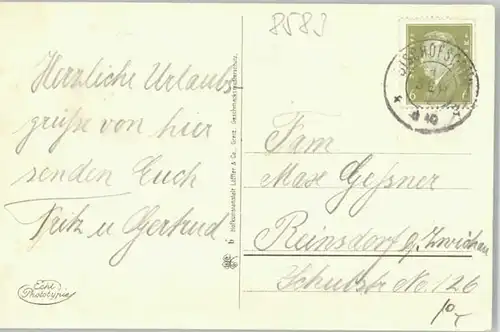 8583
Herzliche Urlaubs
grüße von hier
senden Euch
Fritz u Gertrud
Echte
Phototypie
Hofkunstanstalt Löffler & Co., Greiz. Geschmacksmusterschutz.
6
Fam
Max Geßner
Reinsdorf b/Zwickau
Schulstr No. 126